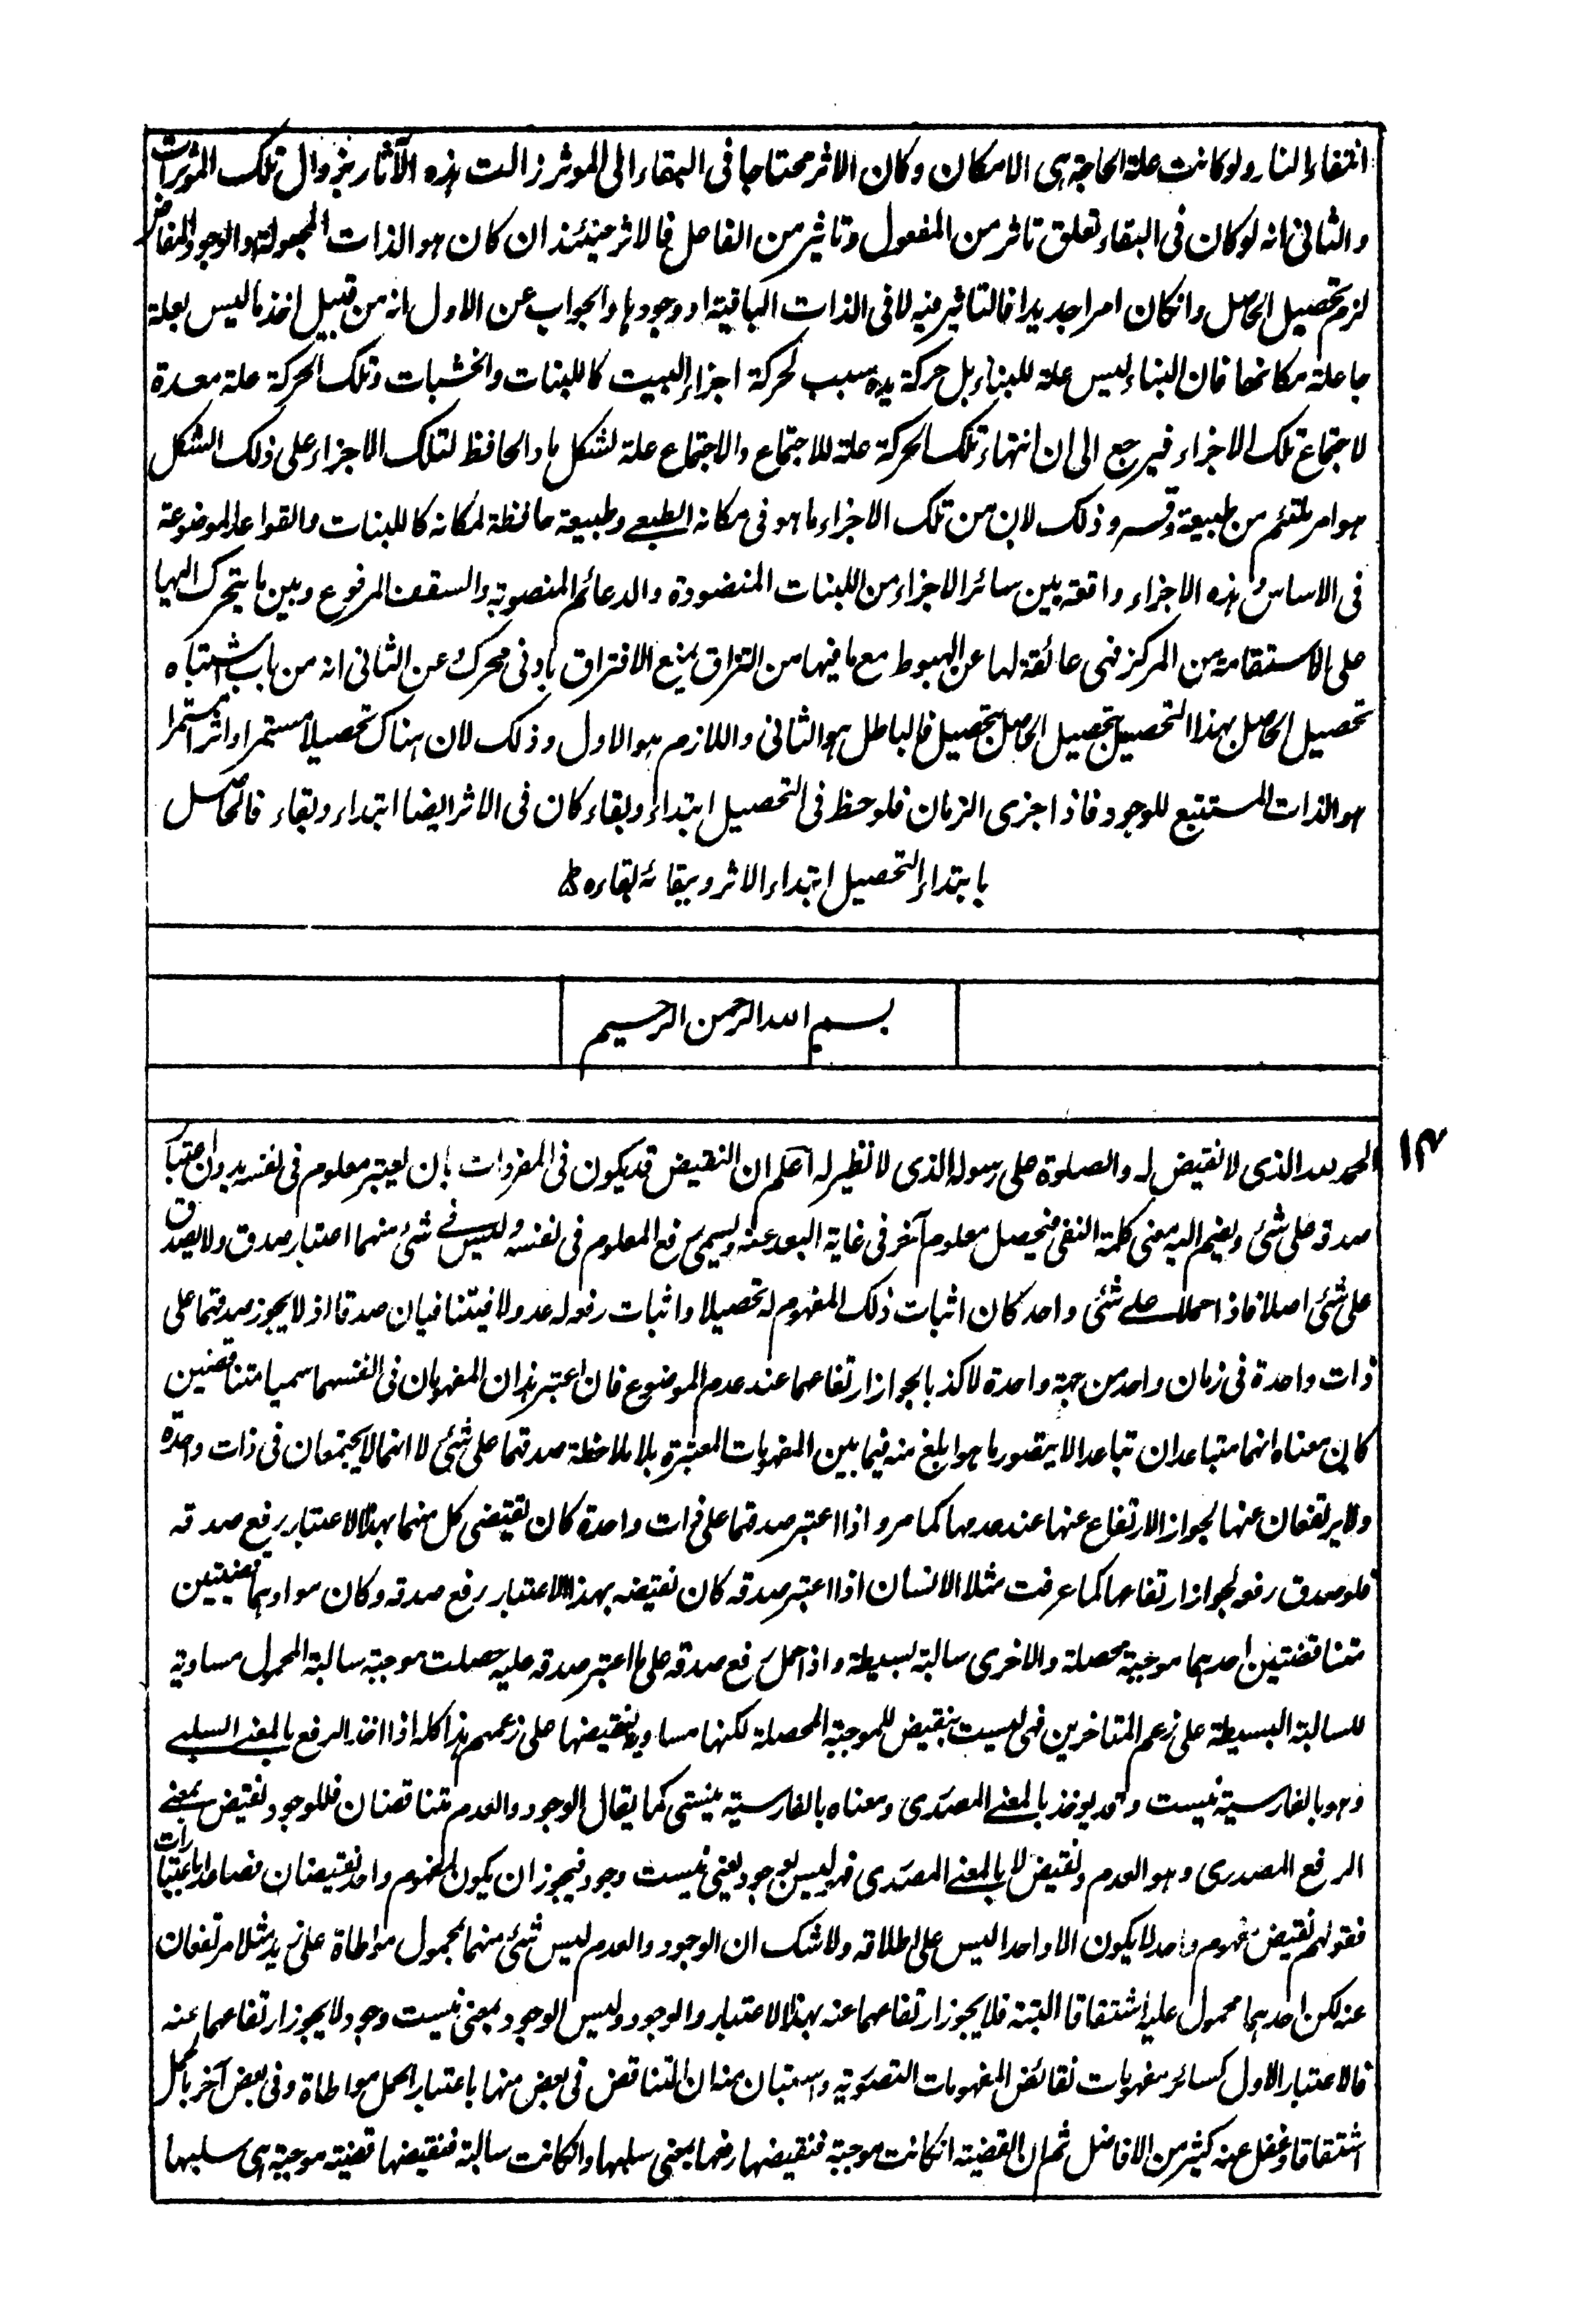 انتفاء النار ولو كانت علة الحاجة هى الامكان وكان الاثر محتاجا فى البقاء الى الموثر زالت هذه الآثار بزوال تلك الموثرات
والثانى انه لو كان فى البقاء تعلق تاثر من المفعول وتاثير من الفاعل فالاثر حينئذ ان كان هو الذات المجعولة او الوجود المفاض
لزم تحصيل الحاصل وانكان امرا جديدا فالتاثير فيه لا فى الذات الباقية او وجودها والجواب عن الاول انه من قبيل اخذ ما ليس بعلة
جا علة مكانها فان البناء ليس علة للبناء بل حركة يده سبب لحركة اجزاء البيت كاللبنات والخشبات وتلك الحركة علة معدة
لاجتماع تلك الاجزاء فيرجع الى ان انتهاء تلك الحركة علة للاجتماع والاجتماع علة لشكل ما والحافظ لتلك الاجزاء على ذلك الشكل
هو امر ملتئم من طبيعة وقسر وذلك لان من تلك الاجزاء ما هو فى مكانه الطبعى وطبيعة حافظة لمكانه كاللبنات والقواعد الموضوعة
فى الاساس وهذه الاجزاء واقعة بين سائر الاجزاء من اللبنات المنضودة والدعائم المنصوبة والسقف المرفوع وبين ما يتحرك اليها
على الاستقامة من المركز فهى عائقة لها عن الهبوط مع ما فيها من التزاق يمنع الافتراق بادنى محرك وعن الثانى انه من باب اشتباه
تحصيل الحاصل بهذا التحصيل بتحصيل الحاصل بتحصيل فالباطل هو الثانى واللازم هو الاول وذلك لان هناك تحصيلا مستمرا واثرا مستمرا
هو الذات المستتبع للوجود فاذا جزى الزمان فلوحظ فى التحصيل ابتداء وبقاء كان فى الاثر ايضا ابتداء وبقاء فالحاصل
بابتداء التحصيل ابتداء الاثر وببقائه بقاءه
بسم الله الرحمن الرحيم
الحمد لله الذى لا نقيض له والصلوة على رسوله الذى لا نظير له اعلم ان النقيض قد يكون فى المفردات بان يعتبر معلوم فى نفسه بدون اعتبار
صدقه على شئ ويضم اليه معنى كلمة النفى فيحصل معلوم آخر فى غاية البعد عنه ويسمى رفع المعلوم فى نفسه وليس فى شئ منهما اعتبار صدق ولا يصدق
على شئ اصلا فاذا حملا على شئى واحد كان اثبات ذلك المفهوم له تحصيلا واثبات رفعه له عدولا فيتنافيان صدقا اذ لا يجوز صدقهما على
ذات واحدة فى زمان واحد من جهة واحدة لا كذبا لجواز ارتفاعهما عند عدم الموضوع فان اعتبر هذان المفهومان فى انفسهما سميا متناقضين
كان معناه انهما متباعدان تباعدا لا يتصور ما هو ابلغ منه فيما بين المفهومات المعتبرة بلا ملاحظة صدقهما على شئ لا انهما لا يجتمعان فى ذات واحدة
ولا يرتفعان عنها لجواز الارتفاع عنها عند عدمها كما مر واذا اعتبر صدقهما على ذات واحدة كان نقيض كل منهما بهذا الاعتبار رفع صدقه
فلو صدق رفعه لجواز ارتفاعهما كما عرفت مثلا الانسان اذا اعتبر صدقه كان نقيضه بهذا الاعتبار رفع صدقه وكان موادهما قضيتين
متناقضتين احدهما موجبة محصلة والاخرى سالبة بسيطة واذا حمل رفع صدقه على ما اعتبر صدقه عليه حصلت موجبة سالبة المحمول مساوية
للسالبة البسيطة على زعم المتاخرين فهى ليست بنقيض للموجبة المحصلة لكنها مساوية لنقيضها على زعمهم هذا كله اذا اخذ الرفع بالمعنى السلبى
وهو بالفارسية نيست وقد يوخذ بالمعنى المصدرى ومعناه بالفارسية نيستى كما يقال الوجود والعدم متناقضان فللوجود نقيض بمعنى
الرفع المصدرى وهو العدم ونقيض لا بالمعنى المصدرى فهو ليس بوجود يعنى نيست وجود فيجوز ان يكون لمفهوم واحد نقيضان فصاعدا باعتبارات
فقولهم نقيض مفهوم واحد لا يكون الا واحدا ليس على اطلاقه ولا شك ان الوجود والعدم ليس شئ منهما بمحمول مواطاة على زيد مثلا مرتفعان
عنه لكن احدهما محمول عليه اشتقاقا البتة فلا يجوز ارتفاعهما عنه بهذا الاعتبار والوجود وليس الوجود بمعنى نيست وجود لا يجوز ارتفاعهما عنه
فالاعتبار الاول كسائر مفهومات نقائض المفهومات التصورية واستبان بهذا ان التناقض فى بعض منها باعتبار الحمل مواطاة وفى بعض آخر بالحمل
اشتقاقا وغفل عنه كثير من الافاضل ثم ان القضية انكانت موجبة فنقيضها رفعها بمعنى سلبها وانكانت سالبة فنقيضها قضية موجبة هى سلبها